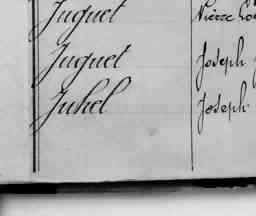 Juguet Pierre
Juguet Joseph
Juhel Joseph